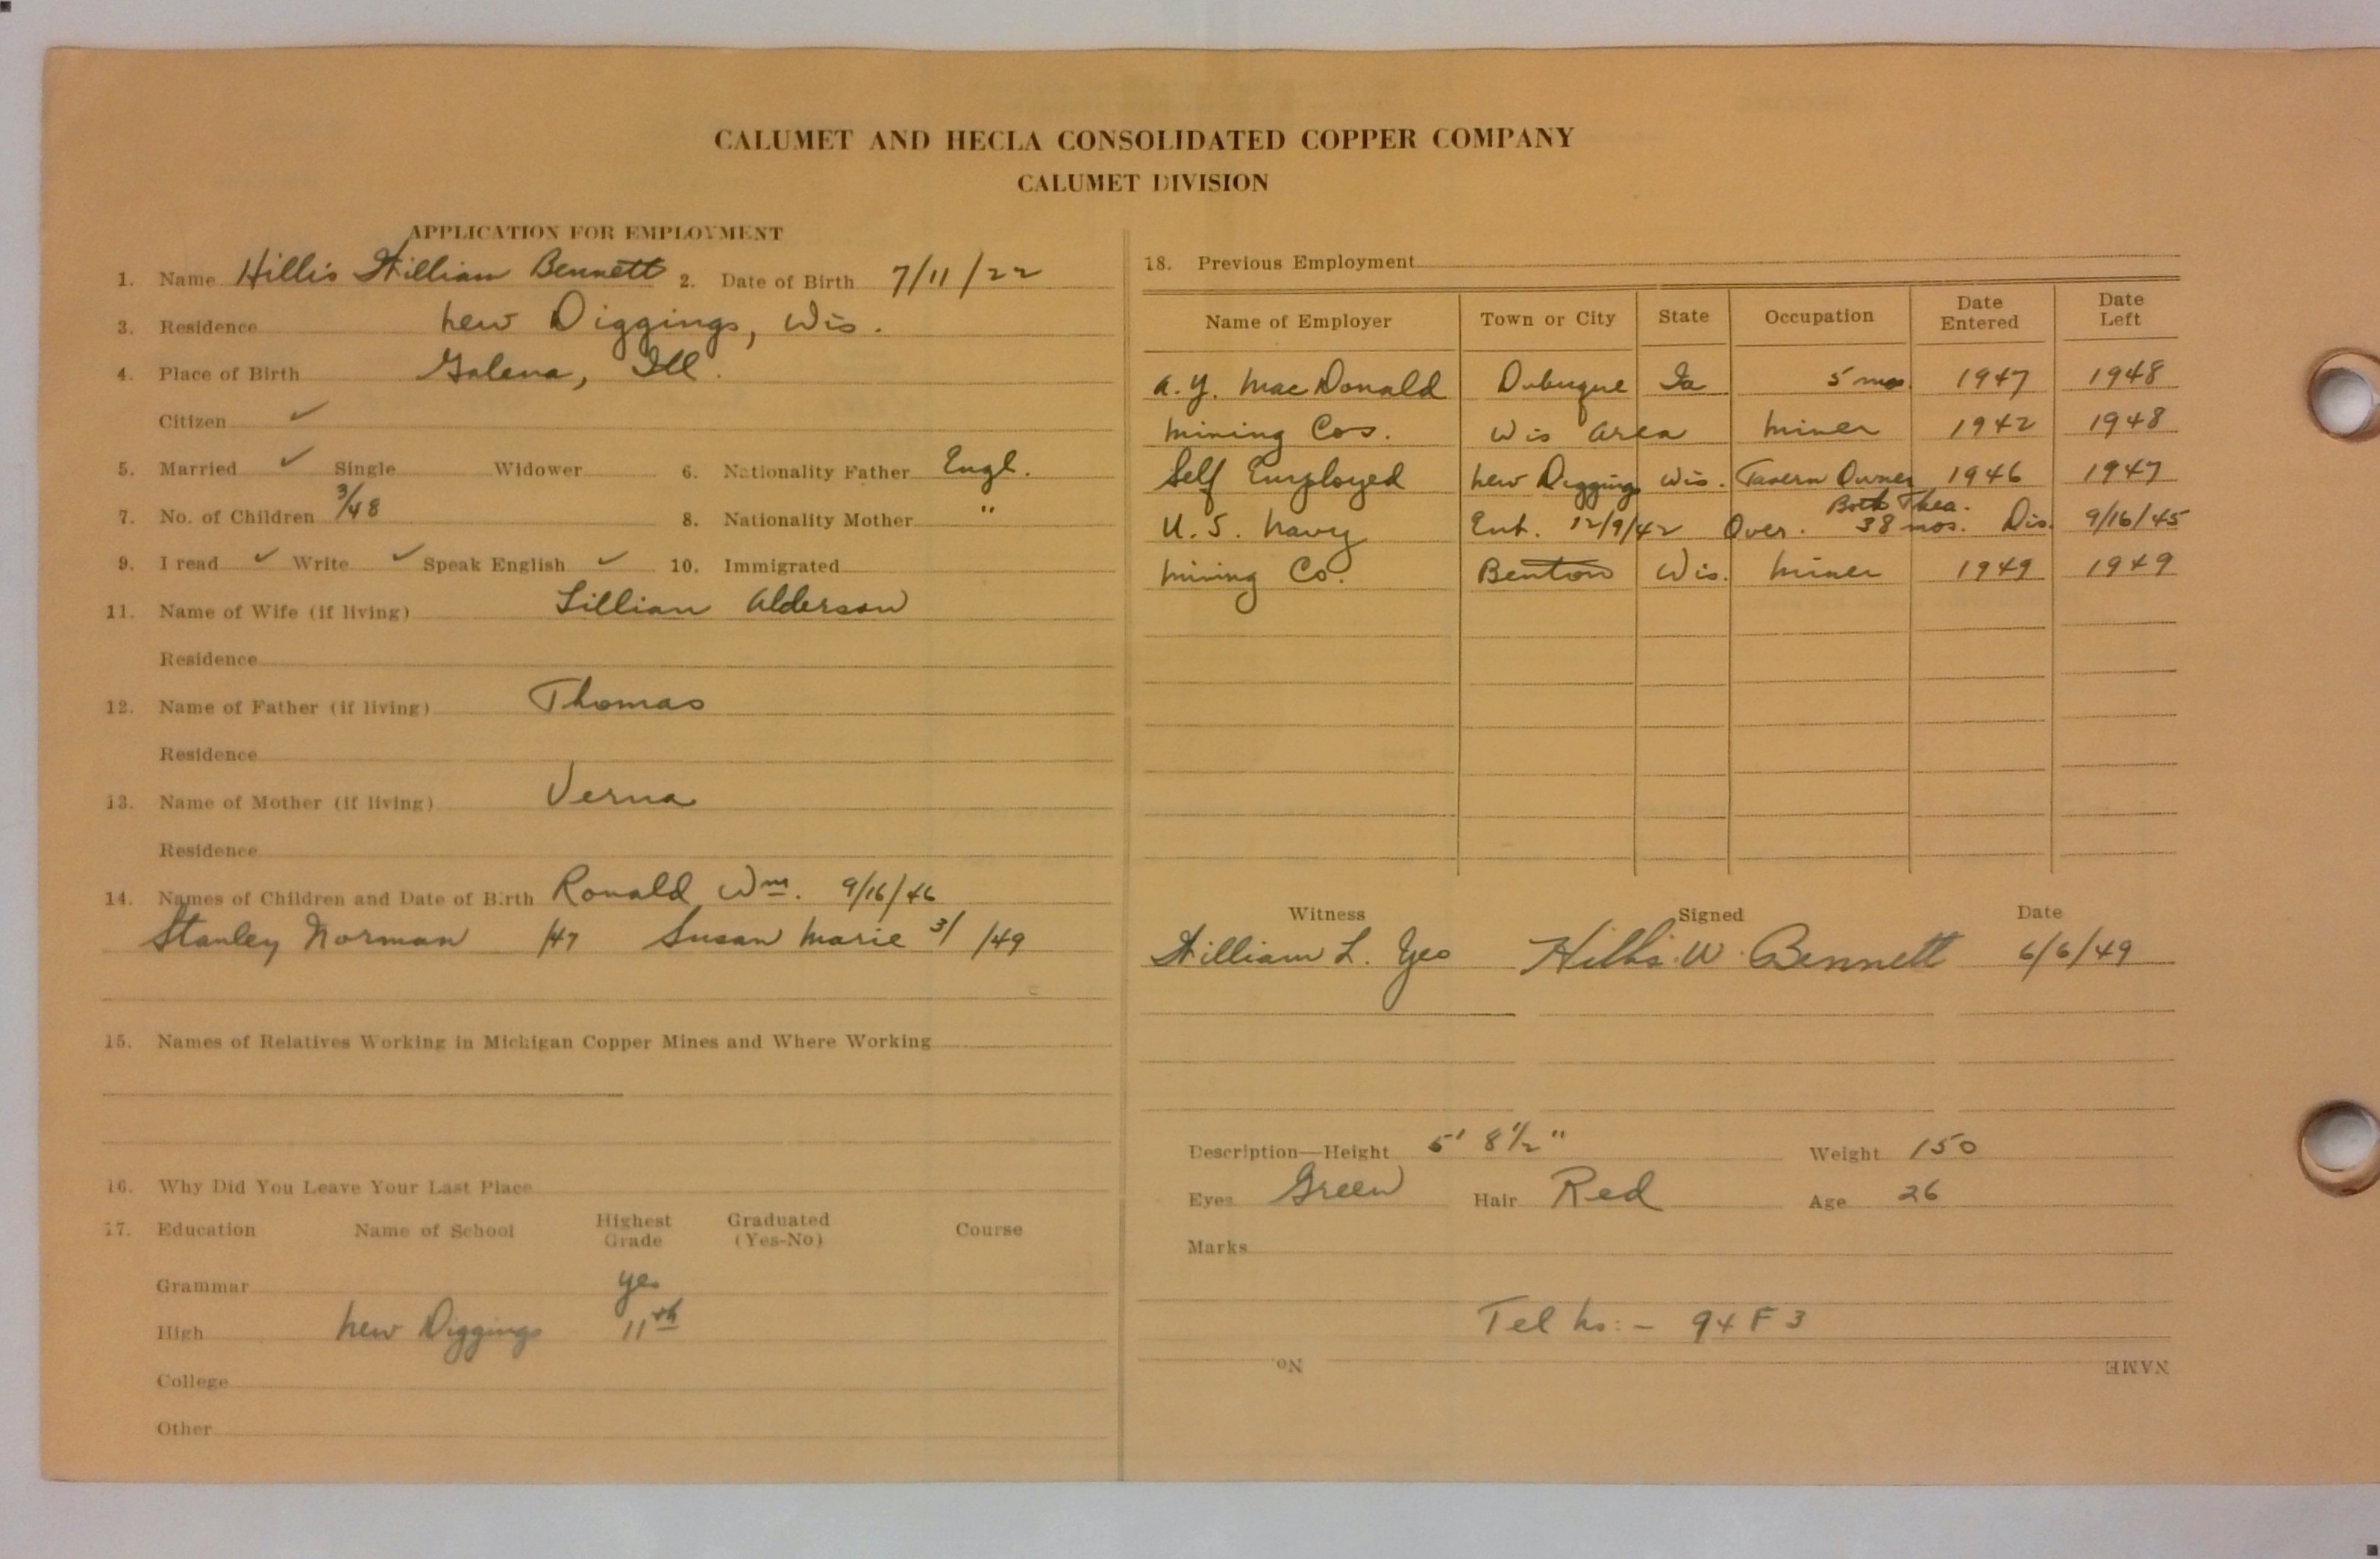 CALUMET AND HECLA CONSOLIDATED COPPER COMPANY
CALUMET DIVISION
APPLICATION FOR EMPLOYMENT
1. Name Hillis William Bennett 2. Date of Birth 7/11/22
3. Residence New Diggings, Wis.
4. Place of Birth Galena, Ill.
Citizen ✓
5. Married ✓ Single Widower 6. Nationality Father Engl.
7. No. of Children 3/48 8. Nationality Mother "
9. I read ✓ Write ✓ Speak English ✓ 10. Immigrated
11. Name of Wife (if living) Lillian Alderson
Residence
12. Name of Father (if living) Thomas
Residence
13. Name of Mother (if living) Verna
Residence
14. Names of Children and Date of Birth Ronald Wm. 9/16/46
Stanley Norman /47 Susan Marie 3/ /49
15. Names of Relatives Working in Michigan Copper Mines and Where Working
16. Why Did You Leave Your Last Place
17. Education Name of School Highest Grade Graduated (Yes-No) Course
Grammar yes
High New Diggings 11th
College
Other
18. Previous Employment
Name of Employer Town or City State Occupation Date Entered Date Left
A.Y. MacDonald Dubuque Ia 5 mos. 1947 1948
Mining Cos. Wis Area Miner 1942 1948
Self Employed New Diggings Wis. Tavern Owner 1946 1947
U.S. Navy Ent. 12/9/42 Over. Both Thea. 38 mos. Dis. 9/16/45
Mining Co. Benton Wis. Miner 1949 1949
Witness Signed Date
William L. Yeo Hillis W. Bennett 6/6/49
Description—Height 5' 8½" Weight 150
Eyes Green Hair Red Age 26
Marks
Tel No:- 94F3
No. NAME